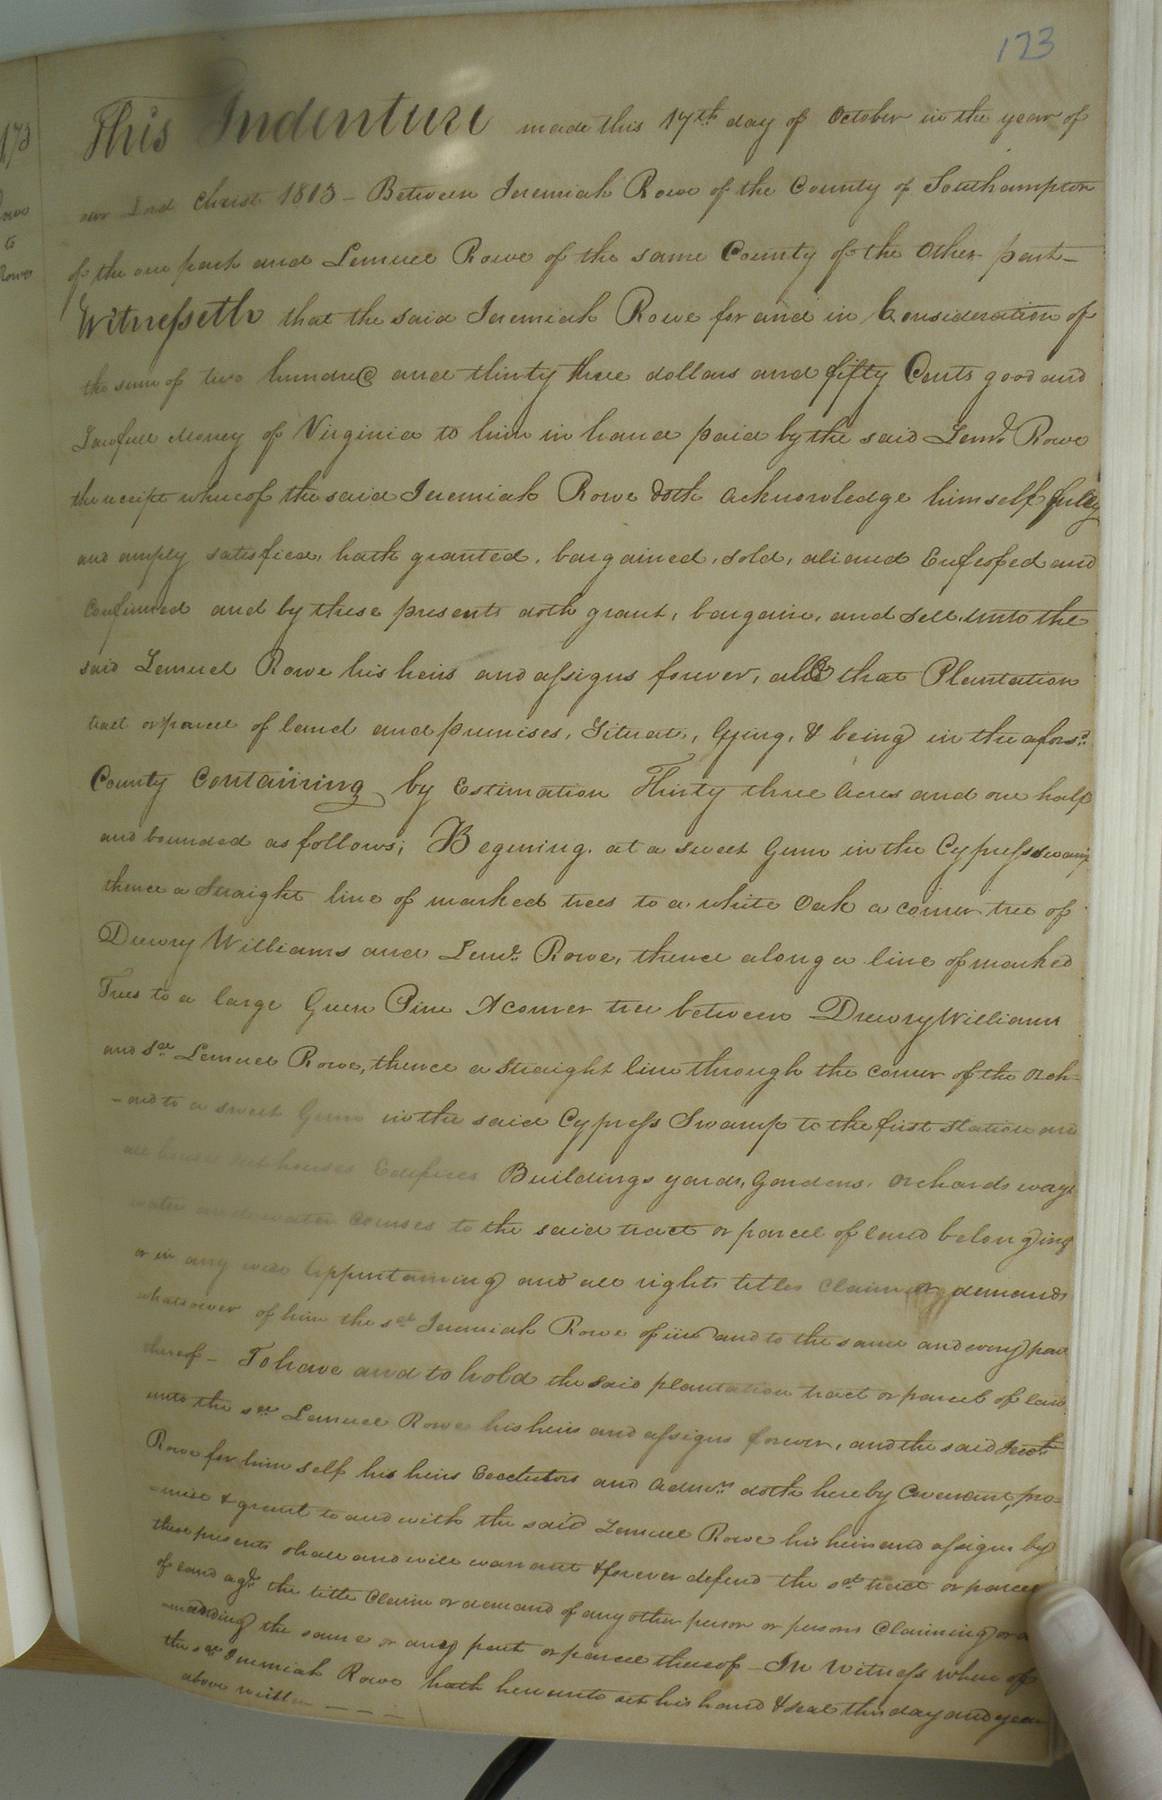 123
173
Rowe
to
Rowe
This Indenture made this 17th day of October in the year of
our Lord Christ 1803 – Between Jeremiah Rowe of the County of Southampton
of the one part and Lemuel Rowe of the same County of the Other part –
Witnesseth that the said Jeremiah Rowe for and in Consideration of
the sum of two hundred and thirty three dollars and fifty Cents good and
Lawfull Money of Virginia to him in hand paid by the said Leml. Rowe
the receipt whereof the said Jeremiah Rowe doth acknowledge himself fully
and amply satisfied, hath granted, bargained, sold, aliened Enfeoffed and
Confirmed and by these presents doth grant, bargain, and sell, unto the
said Lemuel Rowe his heirs and assigns forever, all that Plantation
tract or parcel of land and premises, Situat, lying, & being in the afors.d
County Containing by Estimation Thirty three Acres and one half
and bounded as follows; Begining at a sweet Gum in the Cypress swamp
thence a Straight line of marked trees to a white Oak a corner tree of
Drewry Williams and Leml. Rowe, thence along a line of marked
Trees to a large Green Pine A corner tree between Drewry Williams
and sd. Lemuel Rowe, thence a straight line through the corner of the Orch-
-ard to a sweet Gum in the said Cypress Swamp to the first station and
all houses outhouses Edifices Buildings yards, Gardens, orchards ways
water and water courses to the said tract or parcel of land belonging
or in any wise Appurtaining and all rights titles claims or demands
whatsoever of him the sd. Jeremiah Rowe of in and to the same and every part
thereof – To have and to hold the said plantation tract or parcel of land
unto the sd. Lemuel Rowe his heirs and assigns forever, and the said Jerh.
Rowe for himself his heirs Executors and Admrs. doth hereby Covenant, pro-
-mise & grant to and with the said Lemuel Rowe his heirs and assigns by
these presents shall and will warrant & forever defend the sd. tract or parcel
of land agt. the title Claim or demand of any other person or persons Claiming or de
-manding the same or any part or parcel thereof – In Witness where of
the sd. Jeremiah Rowe hath hereunto set his hand & seal the day and year
above written – – – –